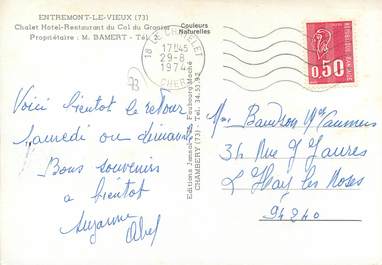 ENTREMONT-LE-VIEUX (73)
Chalet Hotel-Restaurant du Col du Granier
Propriétaire : M. BAMERT - Tél.
Couleurs
Naturelles
18
17H45
29-8
1974
CHER
REPUBLIQUE FRANÇAISE
0,50
Editions Jansol, Faubourg Maché
CHAMBERY (73) - Tél. 34.53.92
Voici bientôt le retour
samedi ou dimanche
Bons souvenirs
à bientôt
Suzanne Abel
34 Rue J Jaurès
L'Hay les Roses
94240